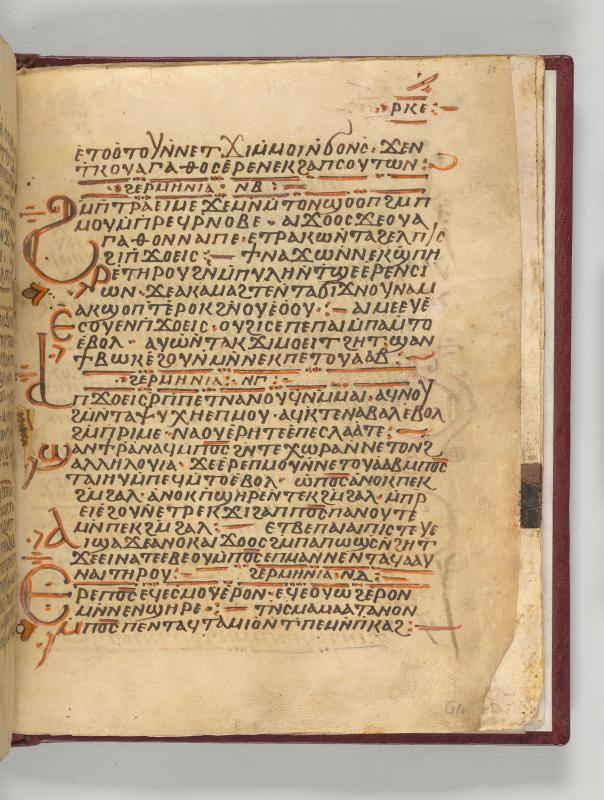 ⲣⲕⲉ:
ⲉⲧⲟⲟⲧⲟⲩⲛⲛⲉⲧϫⲓⲙⲙⲟⲓⲛϭⲟⲛⲥ· ϫⲉⲛ
ⲧⲕⲟⲩⲁⲅⲁⲑⲟⲥⲉⲣⲉⲛⲉⲕϩⲁⲡⲥⲟⲩⲧⲱⲛ:
ϩⲉⲣⲙⲏⲛⲓⲁ · ⲛⲃ
ϩⲙⲡⲧⲣⲁⲉⲓⲙⲉϫⲉⲙⲛⲙⲧⲟⲛϣⲟⲟⲡϩⲙⲡ
ⲙⲟⲩⲙⲡⲣⲉϥⲣⲛⲟⲃⲉ · ⲁⲓϫⲟⲟⲥϫⲉⲟⲩⲁ
ⲅⲁⲑⲟⲛⲛⲁⲓⲡⲉ · ⲉⲧⲣⲁⲕⲱⲛⲧⲁϩⲉⲗⲡⲓⲥ
ϩⲓⲡϫⲟⲉⲓⲥ:— ϯⲛⲁϫⲱⲛⲛⲉⲕϣⲡⲏ
ⲣⲉⲧⲏⲣⲟⲩϩⲛⲙⲡⲩⲗⲏⲛⲧϣⲉⲉⲣⲉⲛⲥⲓ
ⲱⲛ · ϫⲉⲁⲕⲁⲙⲁϩⲧⲉⲛⲧⲁϭⲓϫⲛⲟⲩⲛⲁⲙ
ⲁⲕϣⲟⲡⲧⲉⲣⲟⲕϩⲛⲟⲩⲉⲟⲟⲩ:— ⲁⲓⲙⲉⲉⲩⲉ
ⲉⲥⲟⲩⲉⲛⲡϫⲟⲉⲓⲥ · ⲟⲩϩⲓⲥⲉⲡⲉⲡⲁⲓⲙⲡⲁⲙⲧⲟ
ⲉⲃⲟⲗ · ⲁⲩⲱⲛⲧⲁⲕϫⲓⲙⲟⲉⲓⲧϩⲏⲧϣⲁⲛ
ϯⲃⲱⲕⲉϩⲟⲩⲛⲙⲛⲛⲉⲕⲡⲉⲧⲟⲩⲁⲁⲃ:—
ϩⲉⲣⲙⲏⲛⲓⲁ: ⲛⲅ
ⲡϫⲟⲉⲓⲥⲣⲡⲡⲉⲧⲛⲁⲛⲟⲩϥⲛⲙⲙⲁⲓ · ⲁϥⲛⲟⲩ
ϩⲙⲛⲧⲁⲯⲩⲭⲏⲉⲡⲙⲟⲩ · ⲁϥⲕⲧⲉⲛⲁⲃⲁⲗⲉⲃⲟⲗ
ϩⲙⲡⲣⲓⲙⲉ · ⲛⲁⲟⲩⲉⲣⲏⲧⲉⲉⲡⲉⲥⲗⲁⲁⲧⲉ:—
ϣⲁⲛⲣⲁⲛⲁϥⲙⲡⲟⲥϩⲛⲧⲉⲭⲱⲣⲁⲛⲛⲉⲧⲟⲛϩ
ⲁⲗⲗⲏⲗⲟⲩⲓⲁ · ϫⲉⲉⲣⲉⲡⲙⲟⲩⲛⲛⲉⲧⲟⲩⲁⲁⲃⲙⲡⲟⲥ
ⲧⲁⲓⲏⲩⲙⲡⲉϥⲙⲧⲟⲉⲃⲟⲗ · ⲱⲡⲟⲥⲁⲛⲟⲕⲡⲉⲕ
ϩⲙϩⲁⲗ · ⲁⲛⲟⲕⲡϣⲏⲣⲉⲛⲧⲉⲕϩⲙϩⲁⲗ · ⲙⲡⲣ
ⲉⲓⲉϩⲟⲩⲛⲉⲧⲣⲉⲕϫⲓϩⲁⲡⲡⲟⲥⲡⲁⲛⲟⲩⲧⲉ
ⲙⲛⲡⲉⲕϩⲙϩⲁⲗ:— ⲉⲧⲃⲉⲡⲁⲓⲁⲓⲡⲓⲥⲧⲉⲩⲉ
ⲁⲓϣⲁϫⲉⲁⲛⲟⲕⲁⲓϫⲟⲟⲥϩⲙⲡⲁⲡⲱϣⲥⲛϩⲏⲧ
ϫⲉⲉⲓⲛⲁⲧⲉⲉⲃⲉⲟⲩⲙⲡⲟⲥⲉⲡⲙⲁⲛⲛⲉⲛⲧⲁϥⲁⲁⲩ
ⲛⲁⲓⲧⲏⲣⲟⲩ:— ϩⲉⲣⲙⲏⲛⲓⲁ: ⲛⲇ
ⲉⲣⲉⲡⲟⲥⲉϥⲉⲥⲙⲟⲩⲉⲣⲟⲛ · ⲉϥⲉⲟⲩⲱϩⲉⲣⲟⲛ
ⲙⲛⲛⲉⲛϣⲏⲣⲉ:— ⲧⲛⲥⲙⲁⲙⲁⲁⲧⲁⲛⲟⲛ
ⲙⲡⲟⲥⲡⲉⲛⲧⲁϥⲧⲁⲙⲓⲟⲛⲧⲡⲉⲙⲛⲡⲕⲁϩ:—